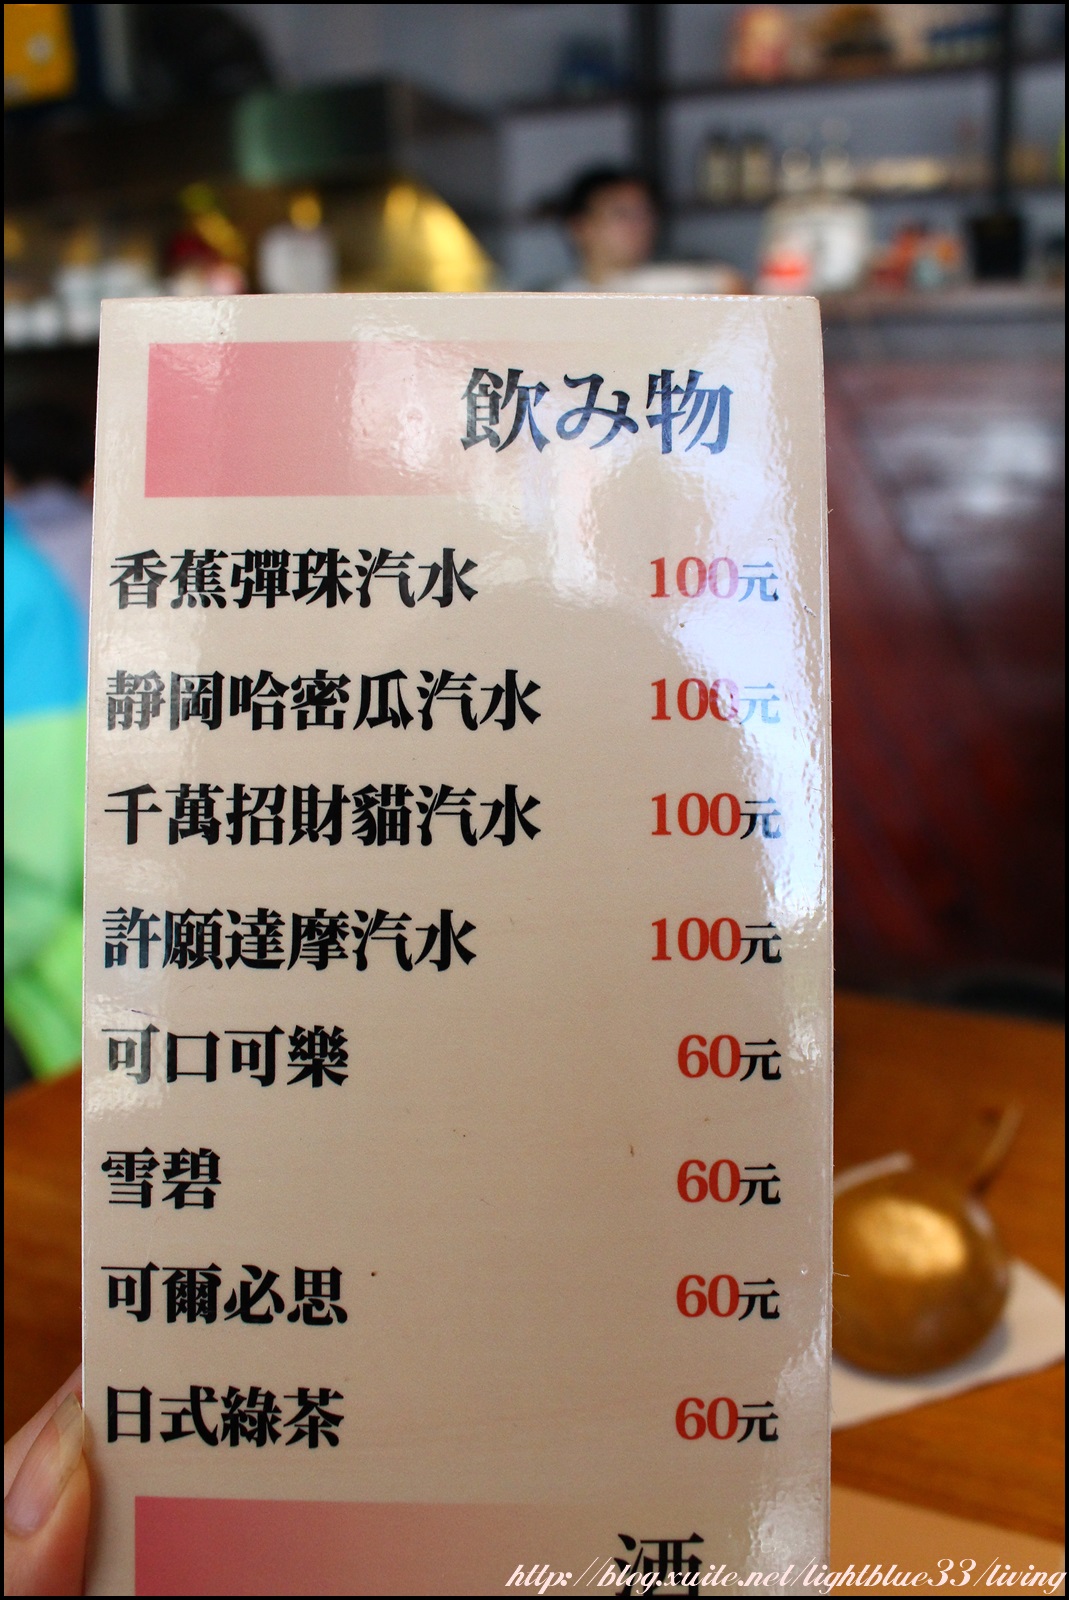 飲み物
香蕉彈珠汽水 100元
靜岡哈密瓜汽水 100元
千萬招財貓汽水 100元
許願達摩汽水 100元
可口可樂 60元
雪碧 60元
可爾必思 60元
日式綠茶 60元
酒
http://blog.xuite.net/lightblue33/living